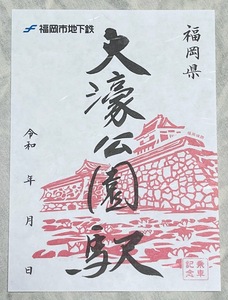 福岡市地下鉄
福岡県
大濠公園駅
令和 年 月 日
乗車
記念